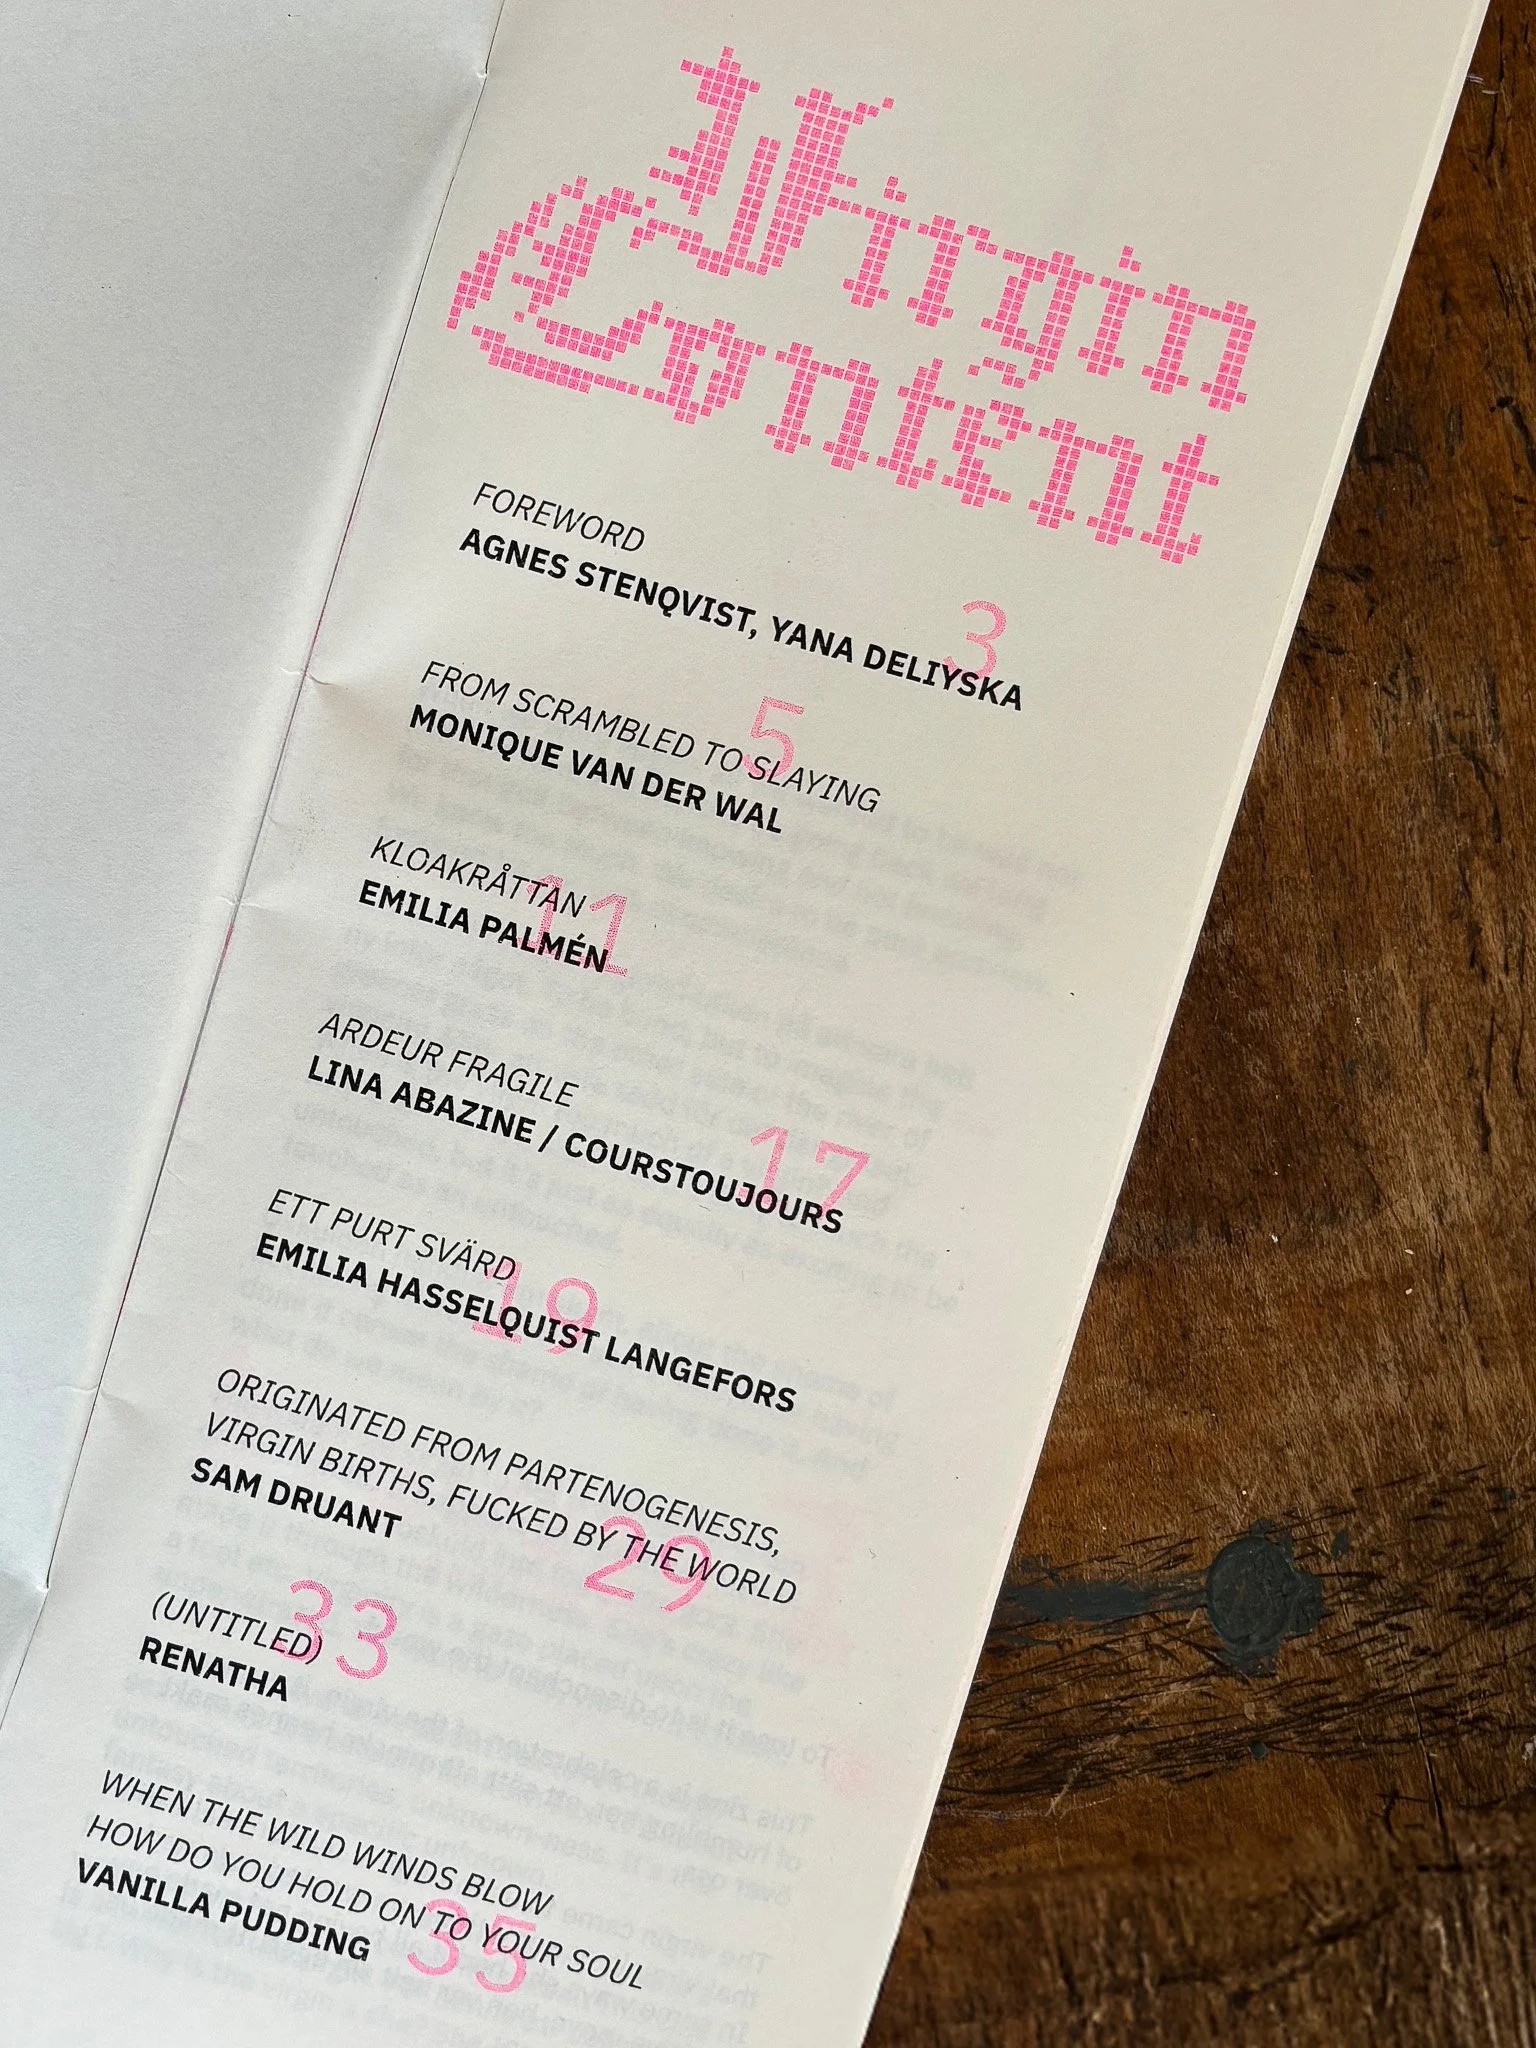 Virgin
Content
FOREWORD
AGNES STENQVIST, YANA DELIYSKA
3
FROM SCRAMBLED TO SLAYING
MONIQUE VAN DER WAL
5
KLOAKRÅTTAN
EMILIA PALMÉN
11
ARDEUR FRAGILE
LINA ABAZINE / COURSTOUJOURS
17
ETT PURT SVÄRD
EMILIA HASSELQUIST LANGEFORS
19
ORIGINATED FROM PARTENOGENESIS,
VIRGIN BIRTHS, FUCKED BY THE WORLD
SAM DRUANT
29
(UNTITLED)
RENATHA
33
WHEN THE WILD WINDS BLOW
HOW DO YOU HOLD ON TO YOUR SOUL
VANILLA PUDDING
35